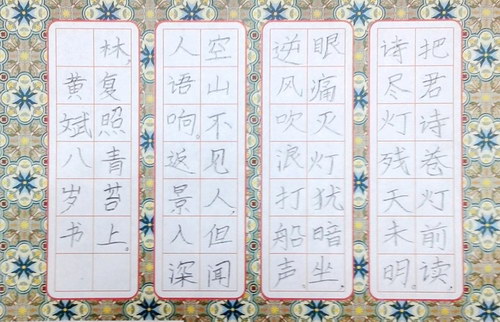 把君诗卷灯前读
诗尽灯残天未明。
眼痛灭灯犹暗坐
逆风吹浪打船声
空山不见人,但闻
人语响。返景入深
林,复照青苔上。
黄斌八岁书